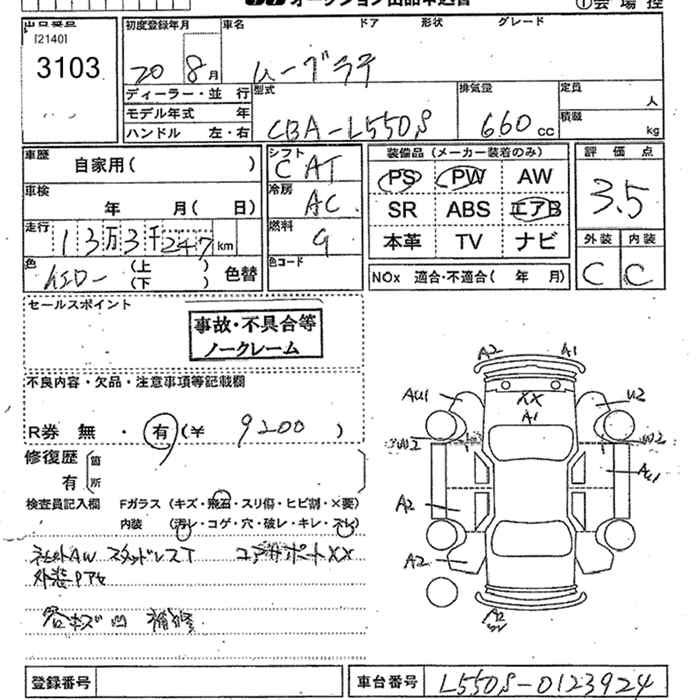 オークション出品申込書
①会場控
出品番号
[2140]
3103
初度登録年月
20 8月
車名
ムーヴラテ
ドア 形状 グレード
ディーラー・並 行
モデル年式 年
ハンドル 左・右
型式
CBA-L550S
排気量
660 cc
定員
人
積載
kg
車歴
自家用( )
車検
年 月( 日)
走行
13万3千247km
色
(上 )
(下 )
色替
シフト
CAT
冷房
AC
燃料
G
色コード
装備品(メーカー装着のみ)
PS PW AW
SR ABS エアB
本革 TV ナビ
NOx 適合・不適合( 年 月)
評価点
3.5
外装 内装
C C
セールスポイント
事故・不具合等
ノークレーム
不良内容・欠品・注意事項等記載欄
R券 無・有(¥ 9200 )
修復歴
有
箇所
検査員記入欄
Fガラス(キズ・飛石・スリ傷・ヒビ割・×要)
内装 (汚レ・コゲ・穴・破レ・キレ・スレ)
社外AW スタッドレスT コアサポートXX
外装Pアセ
各キズ凹 補修
A2 A1
AU1 XX U2
A1
W2 W2
AU1
A2
A2
A2
登録番号
車台番号 L550S-0123924